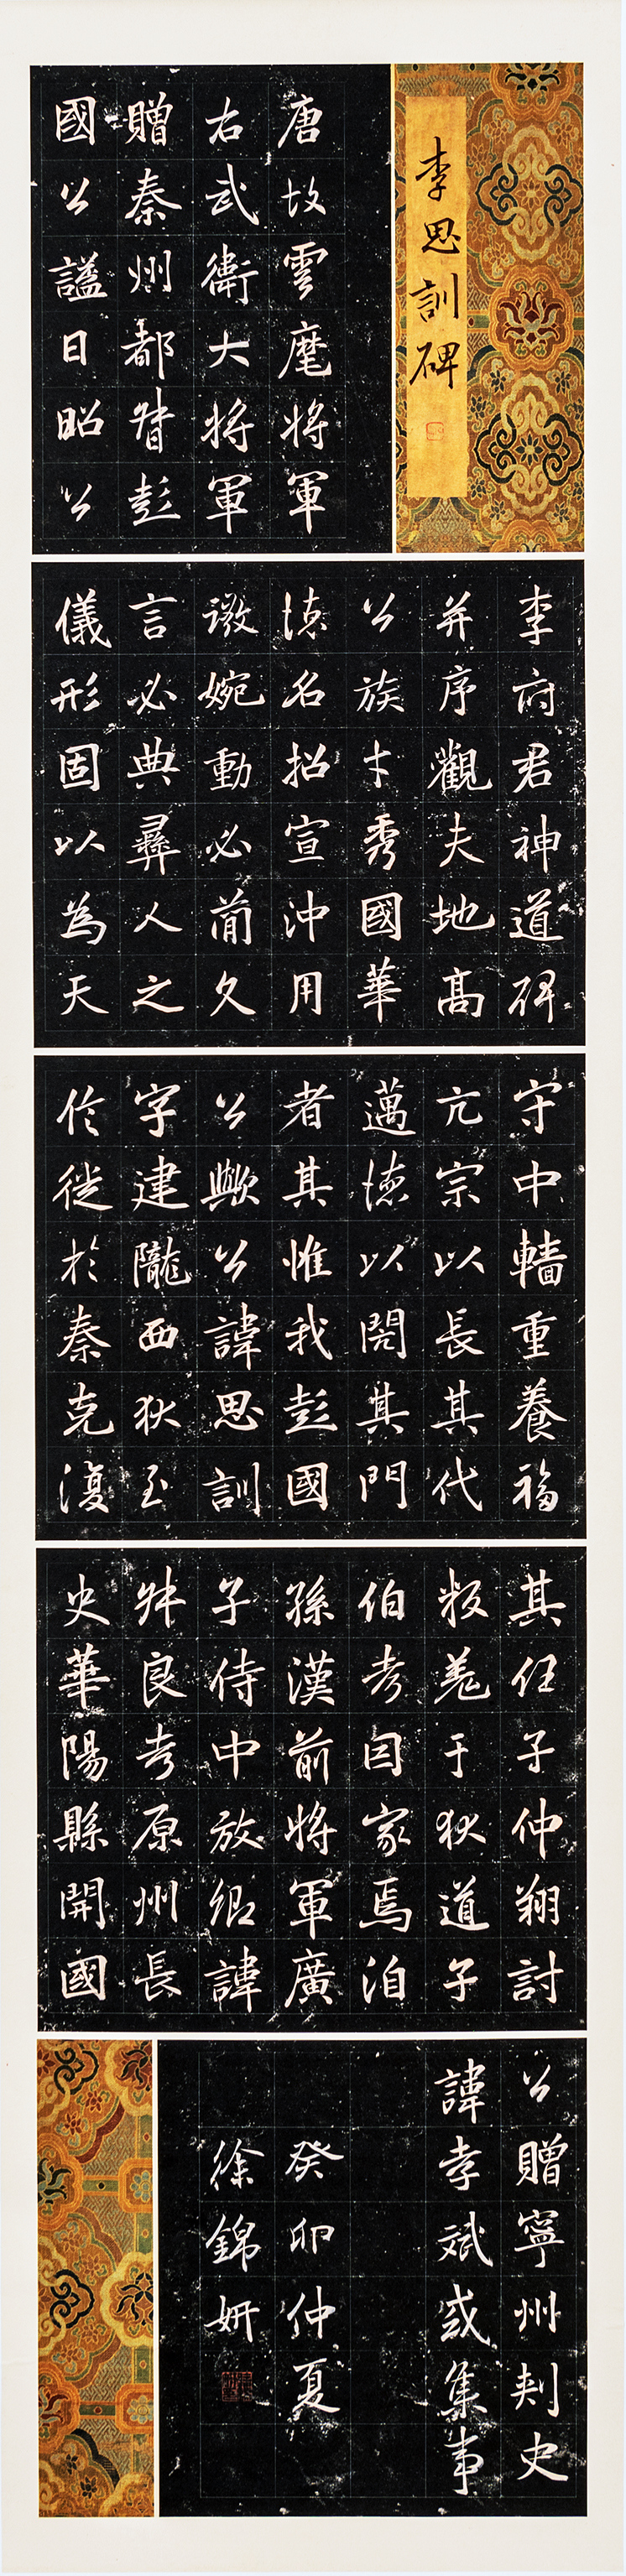 李思訓碑
唐故雲麾將軍
右武衛大將軍
贈秦州都督彭
國公謚曰昭公
李府君神道碑
并序觀夫地高
公族才秀國華
德名招宣沖用
微婉動必簡久
言必典彝人之
儀形固以為天
守中轖重養福
亢宗以長其代
邁德以閎其門
者其惟我彭國
公歟公諱思訓
字建隴西狄至
伦徙於秦克復
其任子仲翔討
叛羌于狄道子
伯考因家焉洎
孫漢前將軍廣
子侍中放卿諱
叔良考原州長
史華陽縣開國
公贈寧州刺史
諱孝斌或集事
癸卯仲夏
徐錦妍